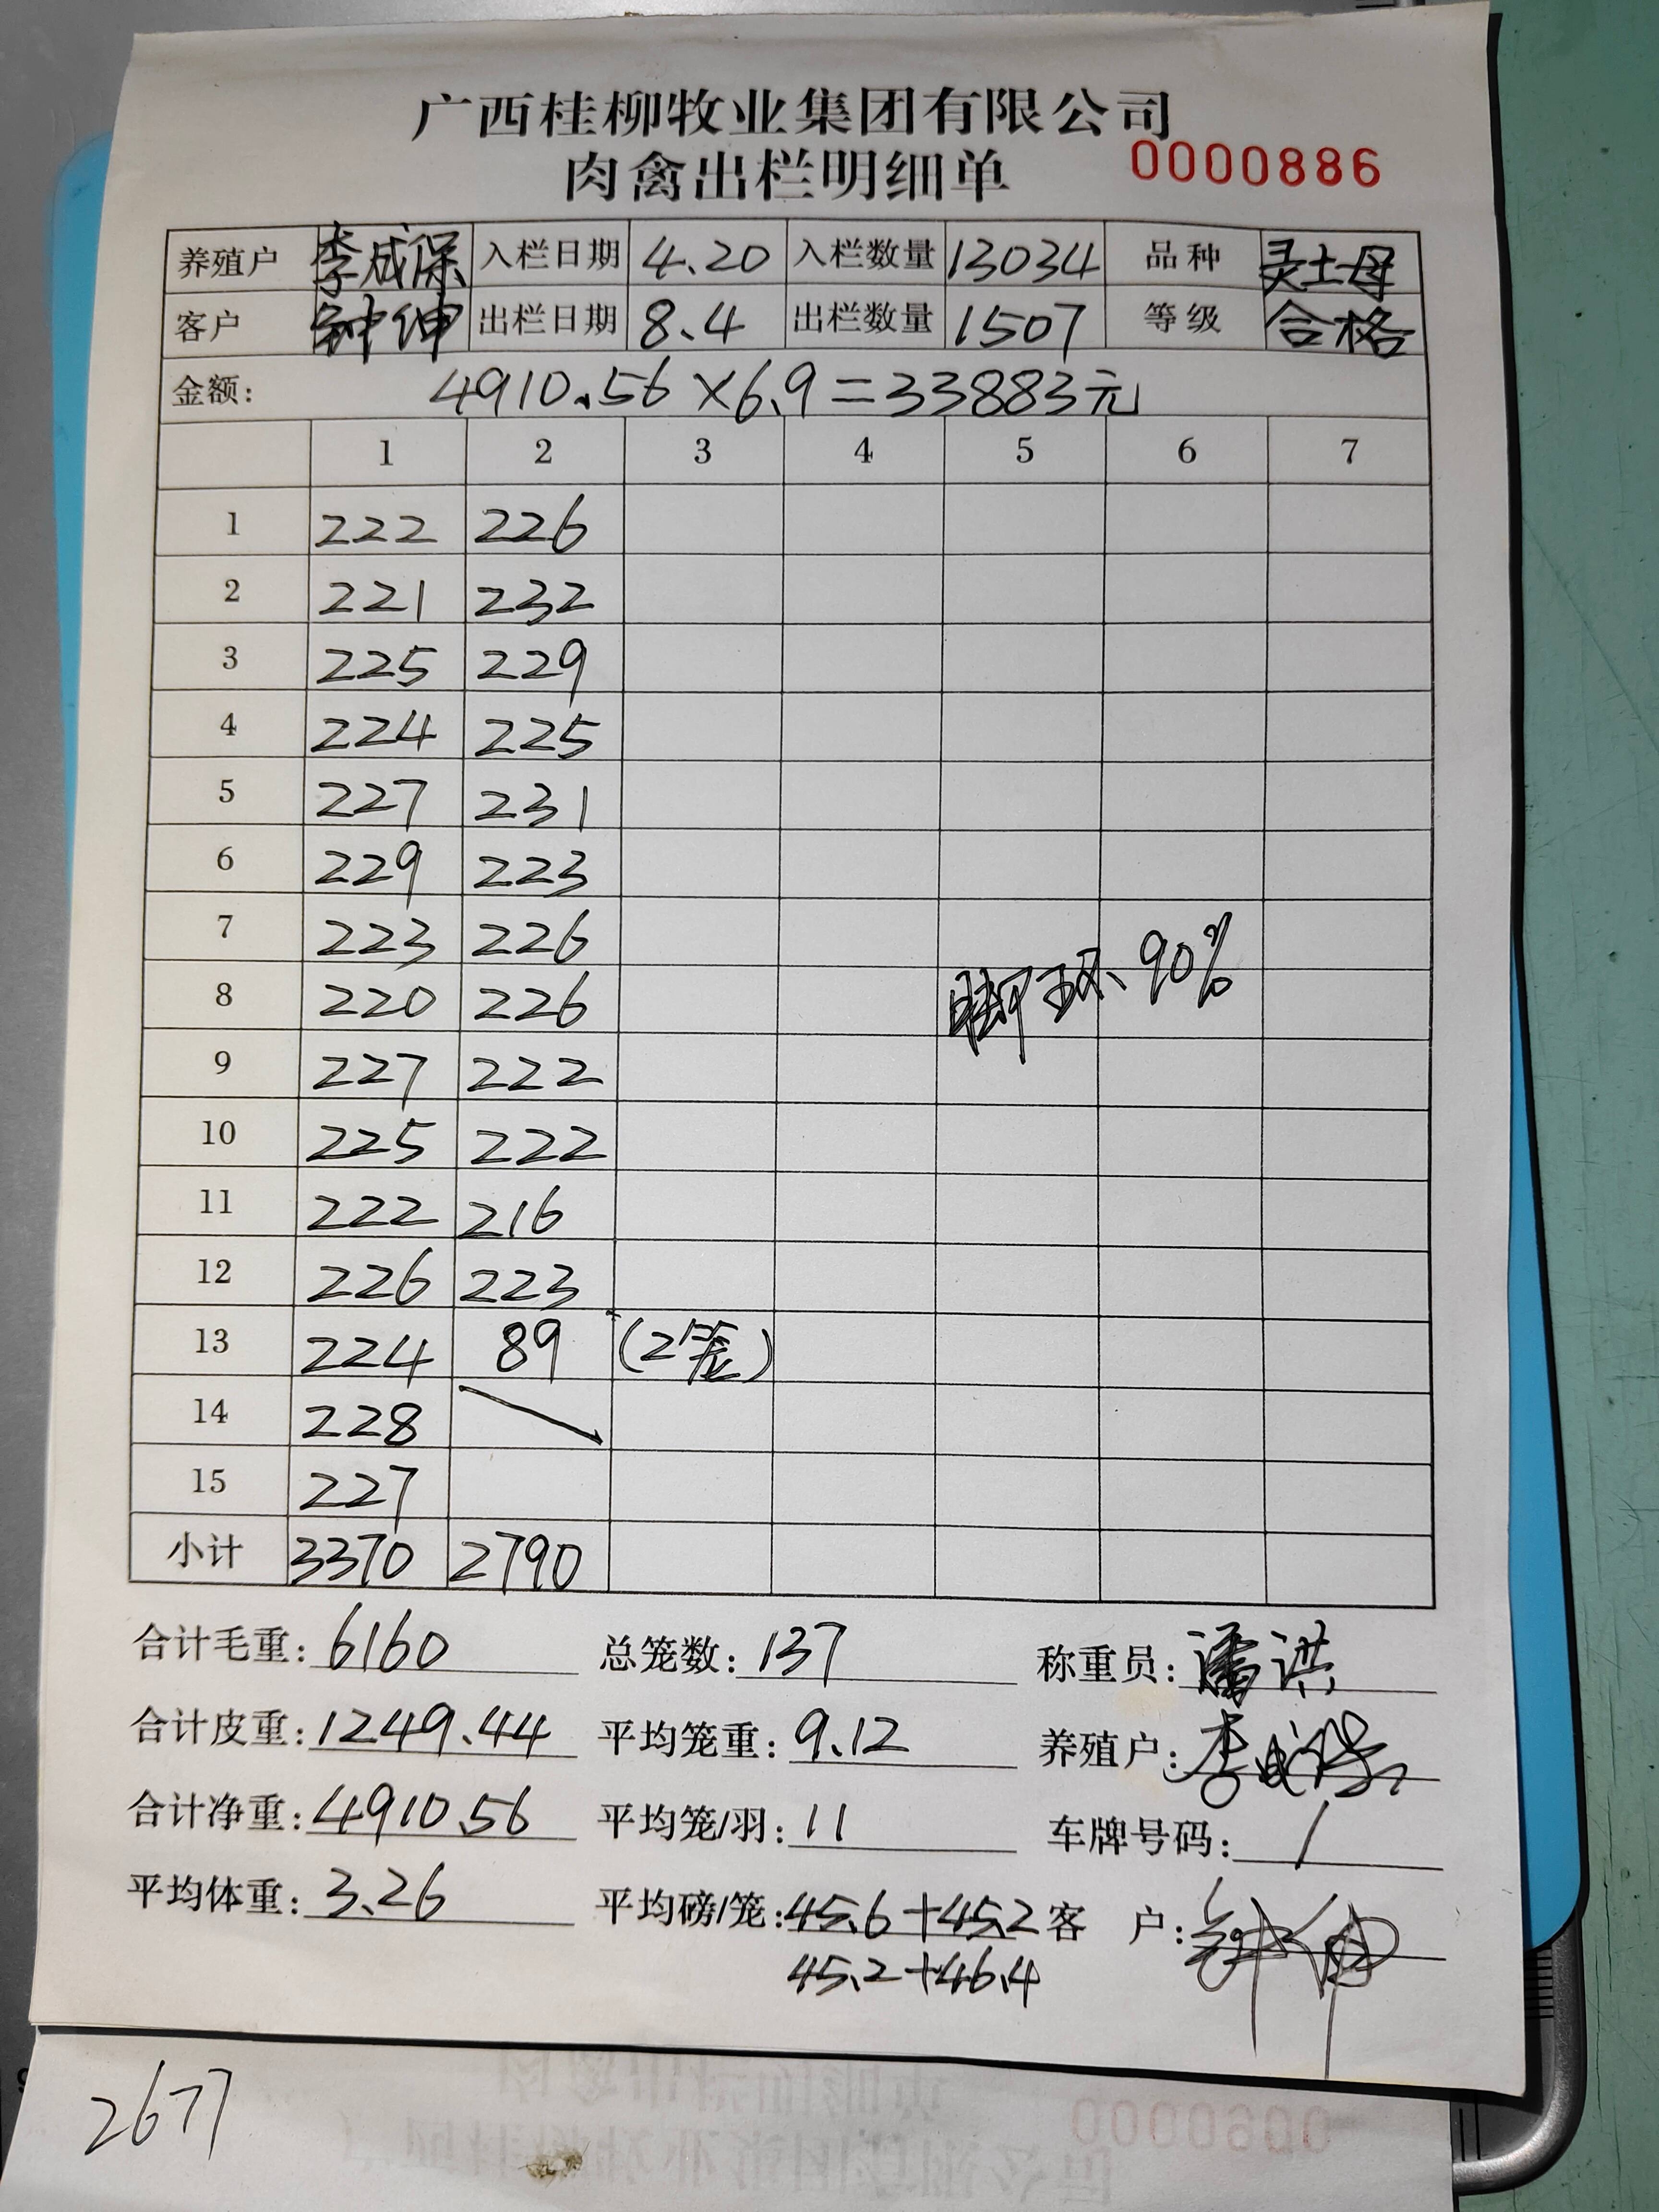 广西桂柳牧业集团有限公司
肉禽出栏明细单 0000886
养殖户 李成保 入栏日期 4.20 入栏数量 13034 品种 灵土母
客户 钟伸 出栏日期 8.4 出栏数量 1507 等级 合格
金额: 4910.56×6.9=33883元
1 2 3 4 5 6 7
1 222 226
2 221 232
3 225 229
4 224 225
5 227 231
6 229 223
7 223 226
8 220 226 脚环90%
9 227 222
10 225 222
11 222 216
12 226 223
13 224 89 (2笼)
14 228
15 227
小计 3370 2790
合计毛重: 6160 总笼数: 137 称重员: 潘洪
合计皮重: 1249.44 平均笼重: 9.12 养殖户: 李成保
合计净重: 4910.56 平均笼/羽: 11 车牌号码: /
平均体重: 3.26 平均磅/笼: 45.6+45.2 客 户: 钟伸
45.2+46.4
2677